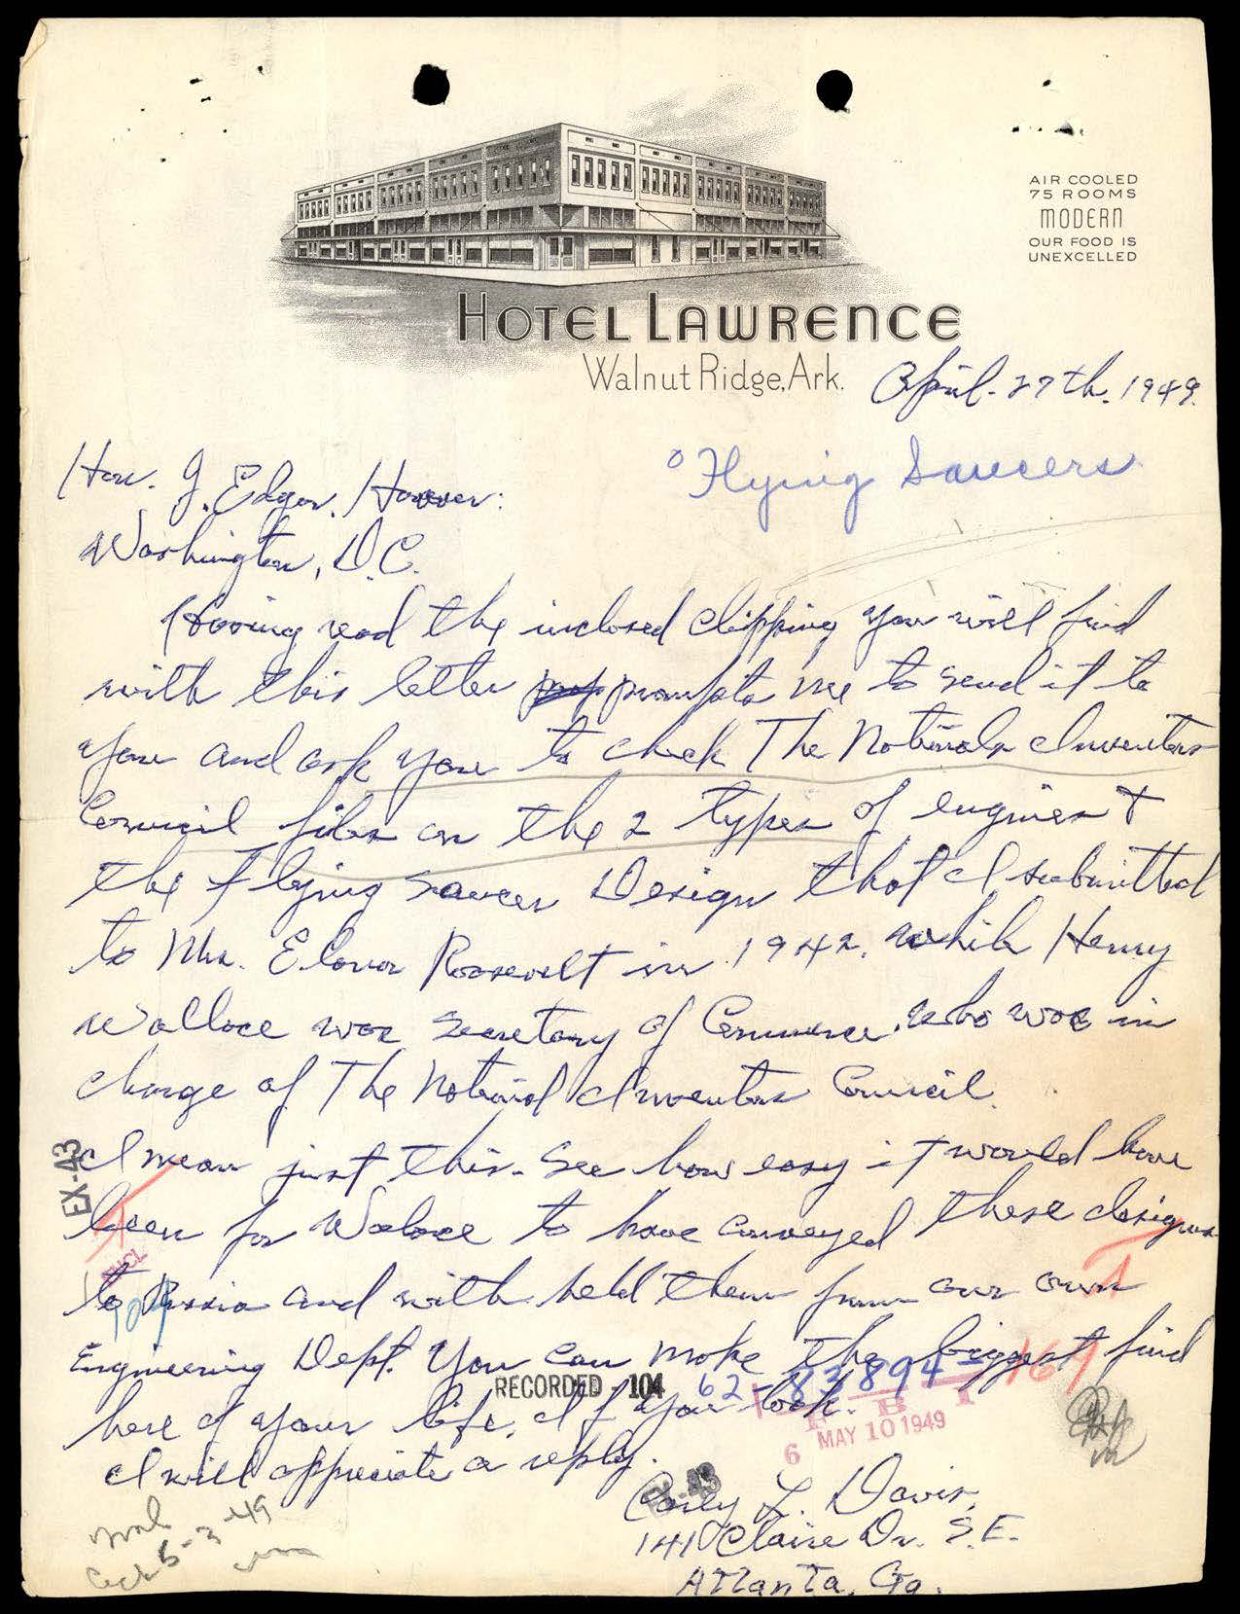 AIR COOLED
75 ROOMS
MODERN
OUR FOOD IS
UNEXCELLED
HOTEL LAWRENCE
Walnut Ridge, Ark.
April. 27th. 1949.
Flying Saucers
Hon. J. Edgar. Hoover:
Washington, D.C.
Having read the inclosed clipping you will find
with this letter prompts me to send it to
you and ask you to check The National Inventors
Council files on the 2 types of engines &
the flying saucer Design that I submitted
to Mrs. Elonor Roosevelt in 1942. while Henry
Wallace was Secretary of Commerce. who was in
charge of The National Inventors Council.
I mean just this. See how easy it would have
been for Wallace to have conveyed these designs
to Russia and with held them from our own
Engineering Dept. You can make the biggest find
here of your life, If you look.
I will appreciate a reply.
EX-43
RECORDED - 104
62-83894-169
F B I
6 MAY 10 1949
L. Davis,
1410 Claire Dr. S.E.
Atlanta, Ga.
5-3-49